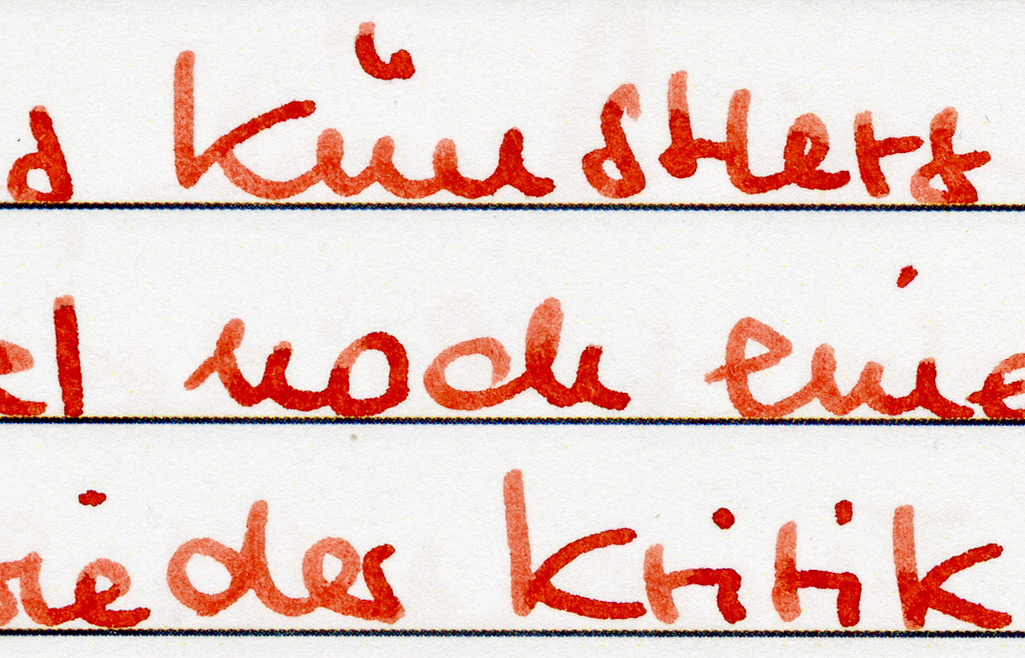 s Künstlers
el noch eine
ie der Kritik